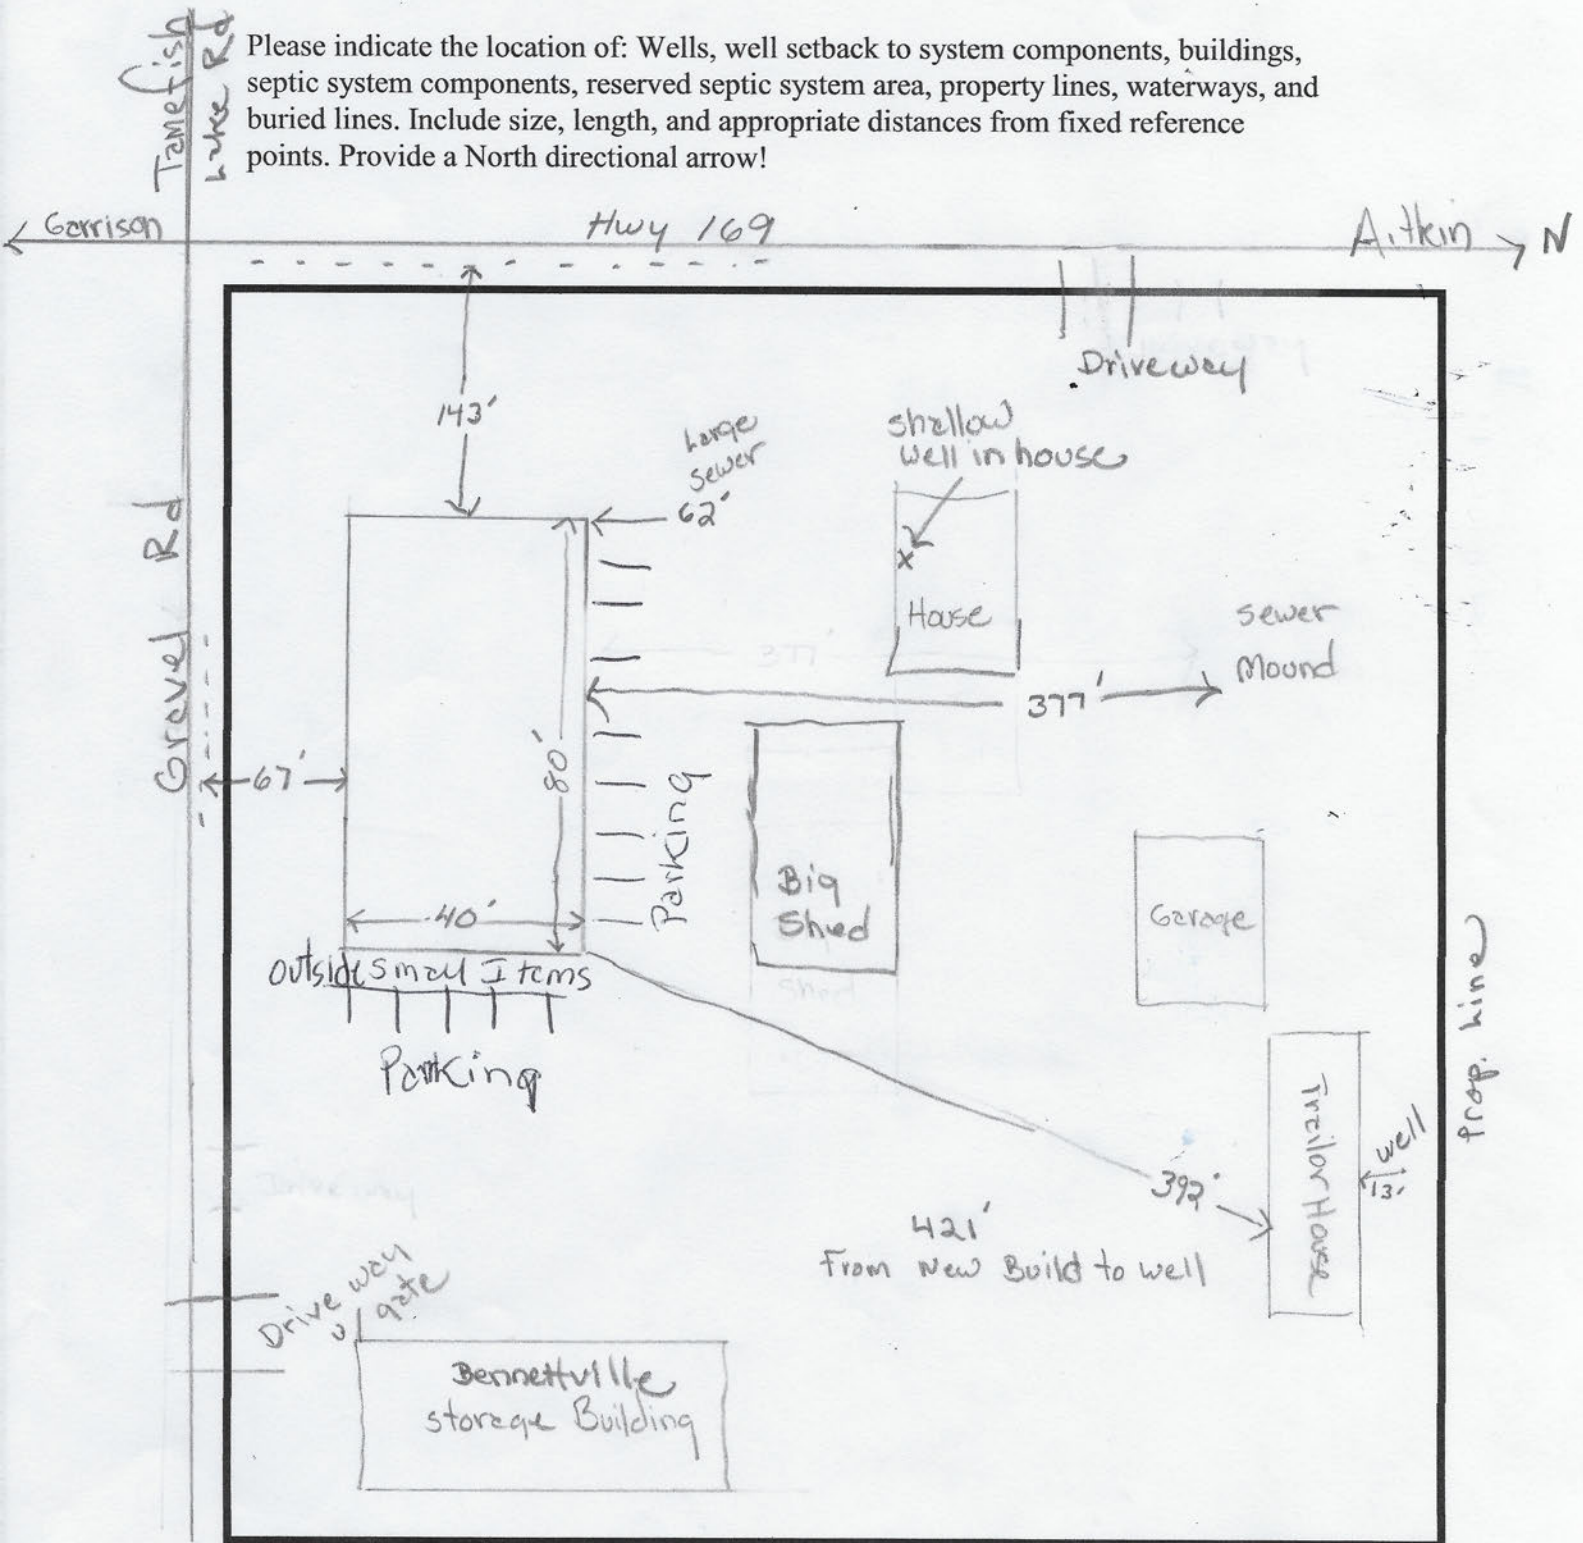 Tamefish
Lake Rd
Please indicate the location of: Wells, well setback to system components, buildings,
septic system components, reserved septic system area, property lines, waterways, and
buried lines. Include size, length, and appropriate distances from fixed reference
points. Provide a North directional arrow!
Garrison
Hwy 169
Aitkin
N
Driveway
143'
Large
sewer
62'
shallow
well in house
x
House
Gravel Rd
sewer
Mound
377'
377'
67'
80'
Parking
Big
Shed
Garage
40'
outside Small Items
Parking
Shed
Prop. Line
Trailor House
well
13'
392'
421'
From New Build to well
Driveway
Drive way
gate
Bennettville
storage Building